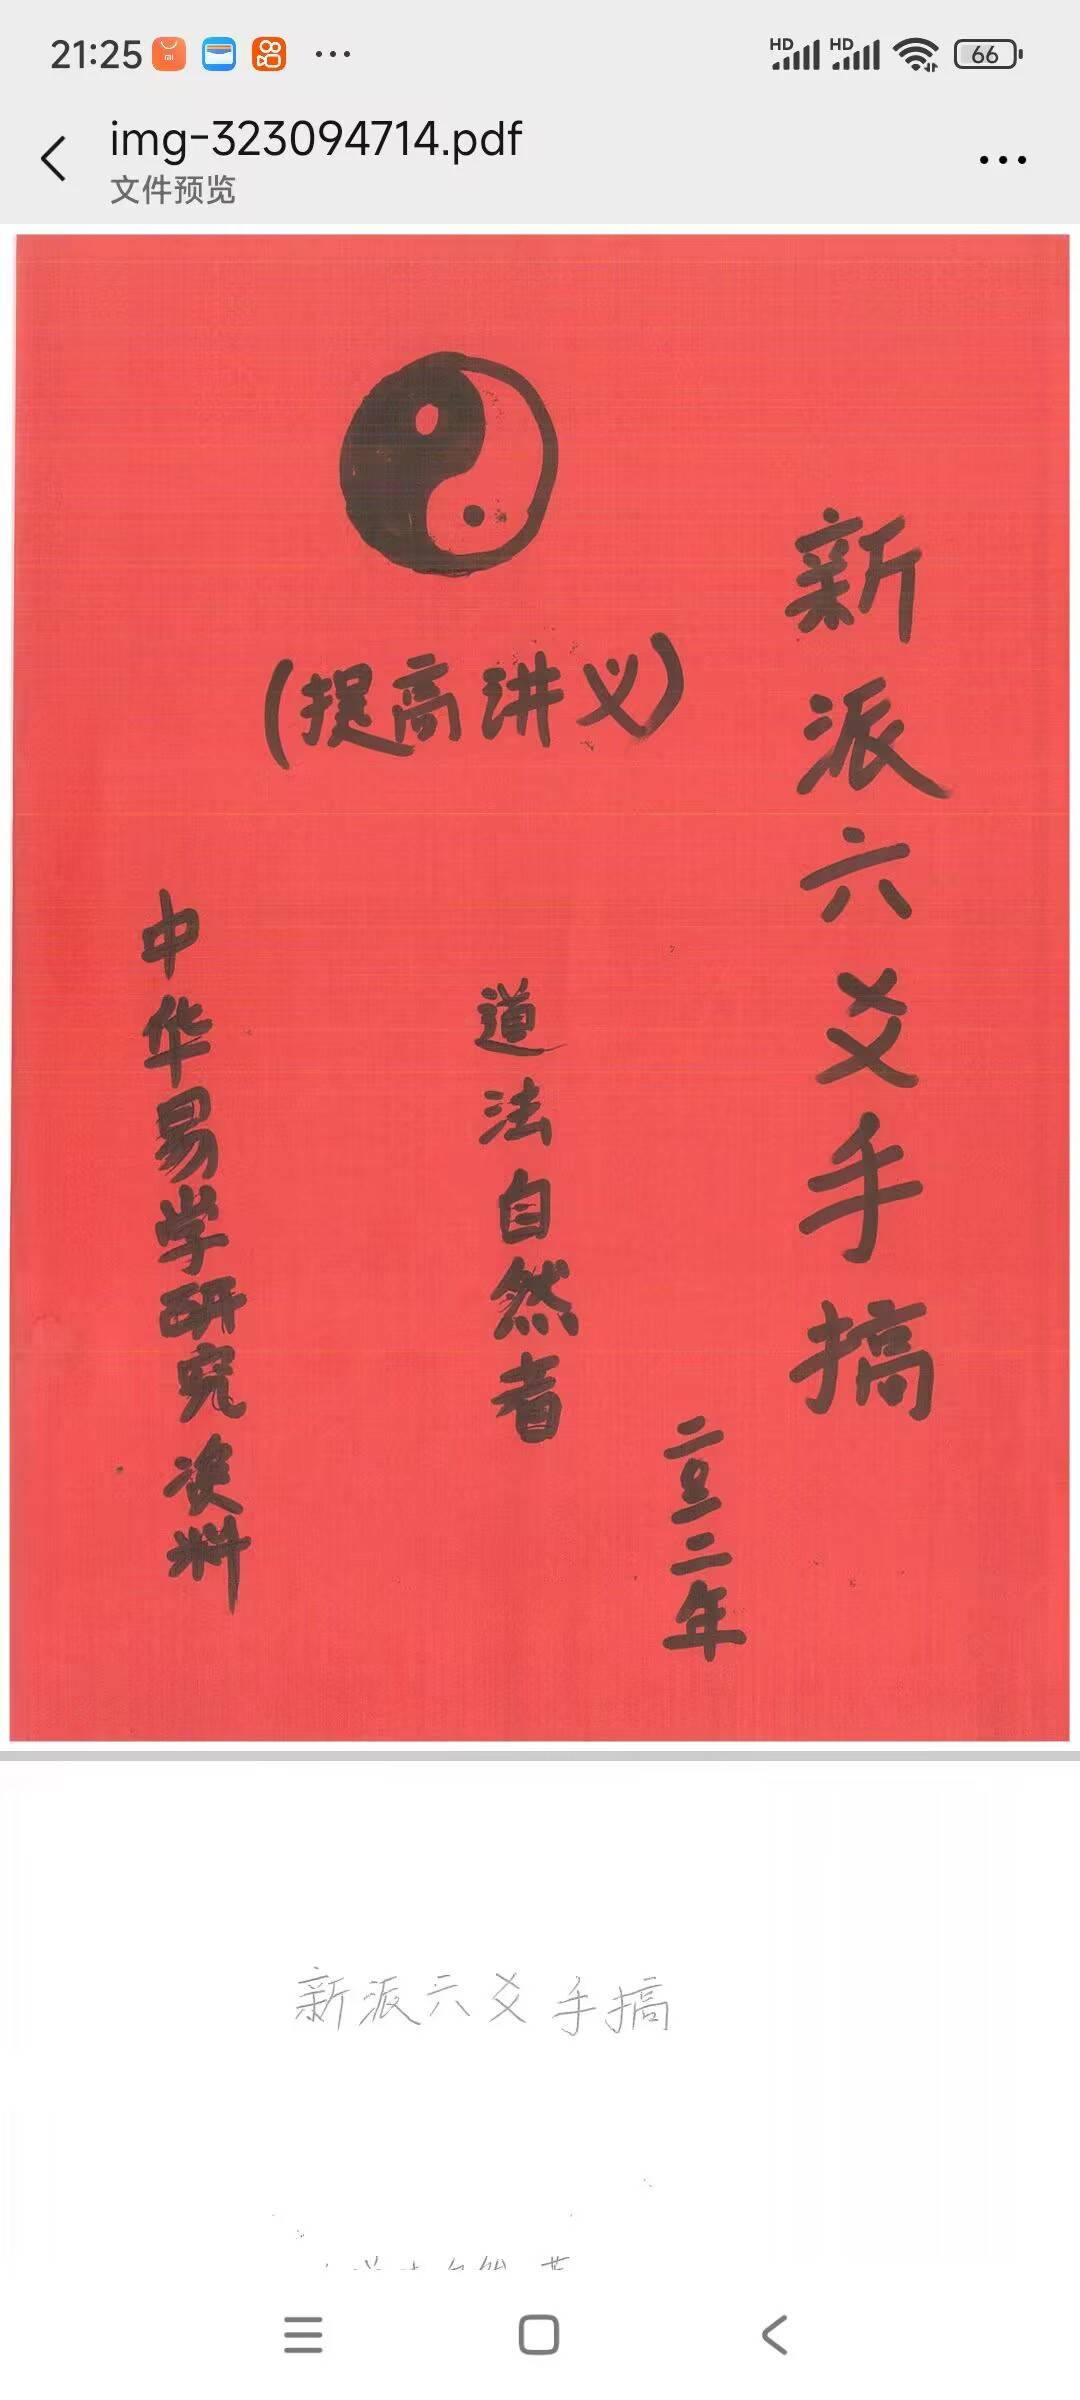 21:25
HD HD 66
img-323094714.pdf
文件预览
新派六爻手搞
(提高讲义)
二〇一二年
道法自然者
中华易学研究资料
新派六爻手搞